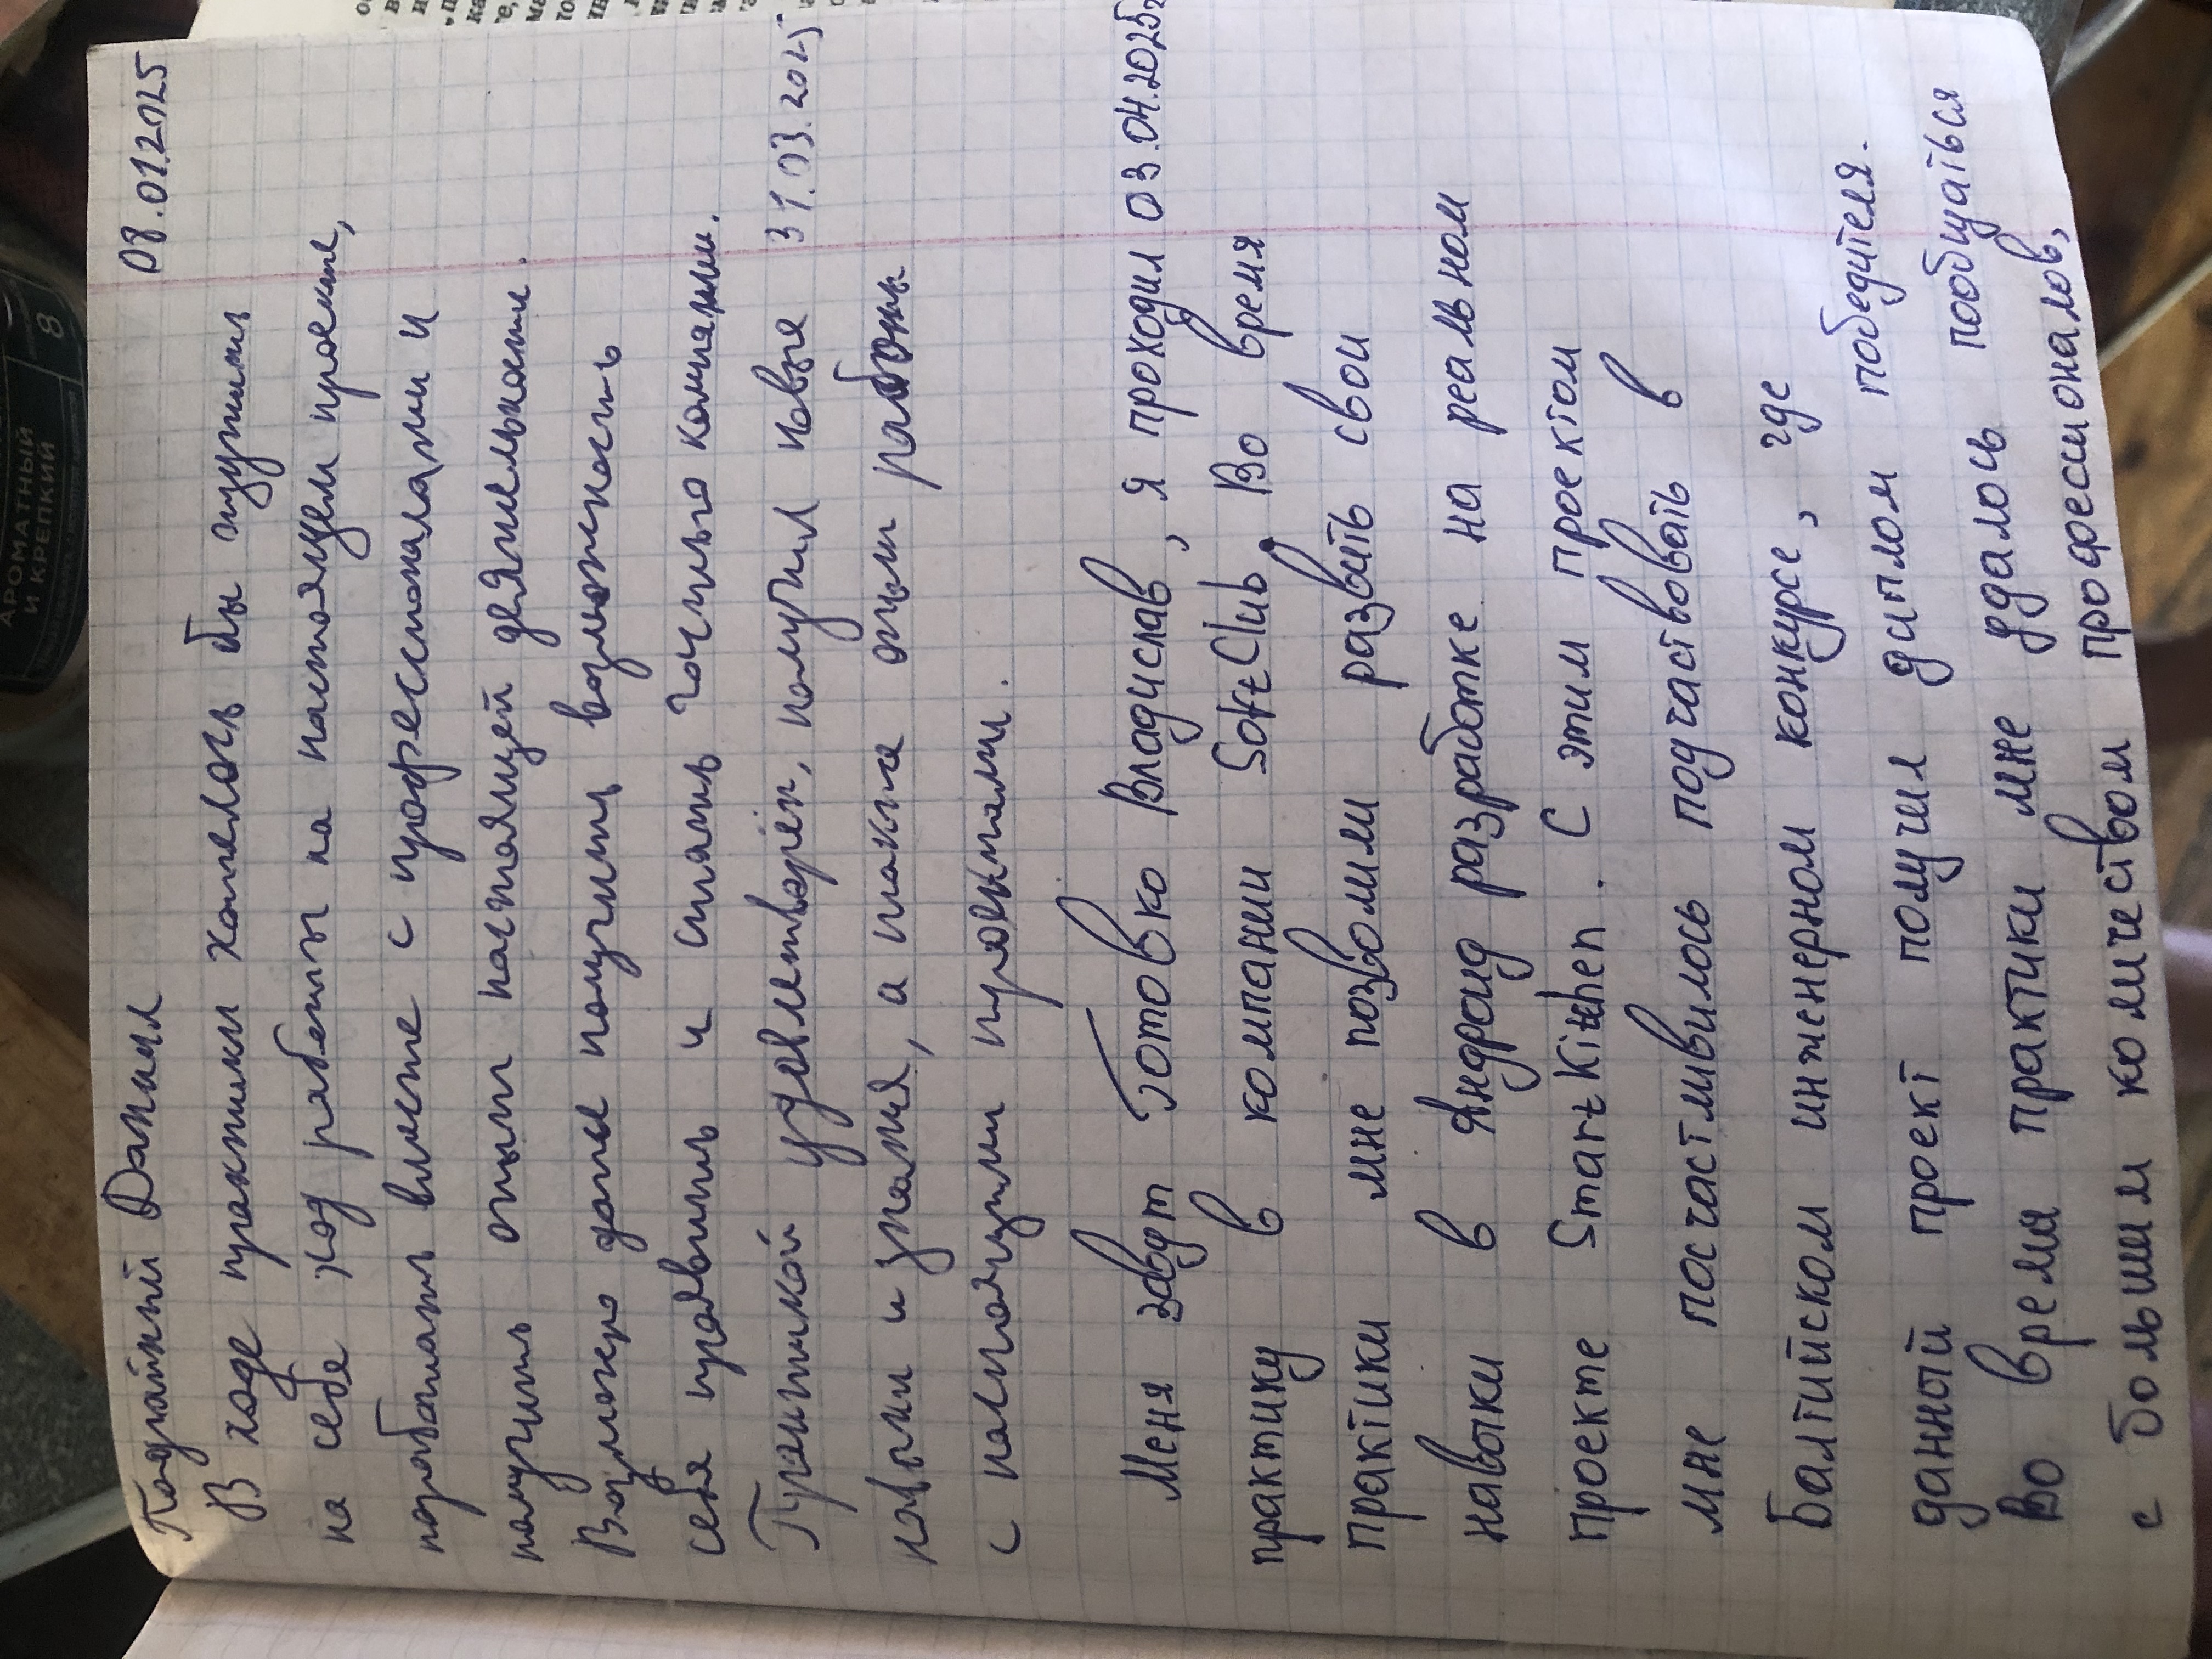 Подгайный Даниил 08.01.2025
В ходе практики хотелось бы ощутить
на себе ход работы на настоящем проекте,
поработать вместе с профессионалами и
получить опыт настоящей деятельности.
Возможно даже получить возможность
себя проявить и стать частью компании.
Практикой удовлетворён, получил новые 31.03.2025
навыки и знания, а также опыт работы
с настоящими проектами.
Меня завут Готовко Владислав, я проходил 03.04.2025г
практику в компании SoftClub. Во время
практики мне позволили развить свои
навыки в Андроид разработке на реальном
проекте SmartKitchen. С этим проектом
мне посчастливилось поучаствовать в
Балтийском инженерном конкурсе, где
данный проект получил диплом победителя.
Во время практики мне удалось пообщаться
с большим количеством профессионалов,
АРОМАТНЫЙ
И КРЕПКИЙ
8